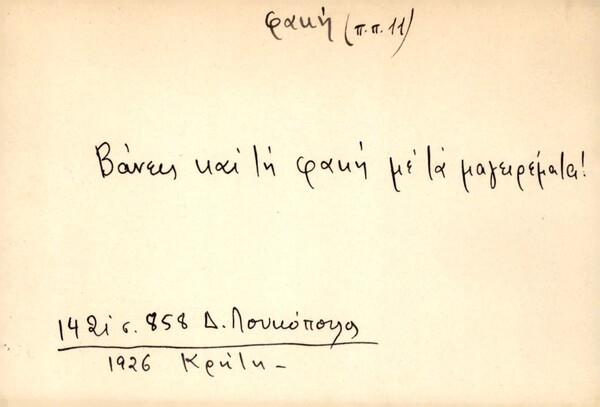 φακή (π.π. 11)
Βάνεις καί τή φακή μέ τά μαγειρέματα!
1421 σ. 858 Δ. Λουκόπουλος
1926 Κρήτη -